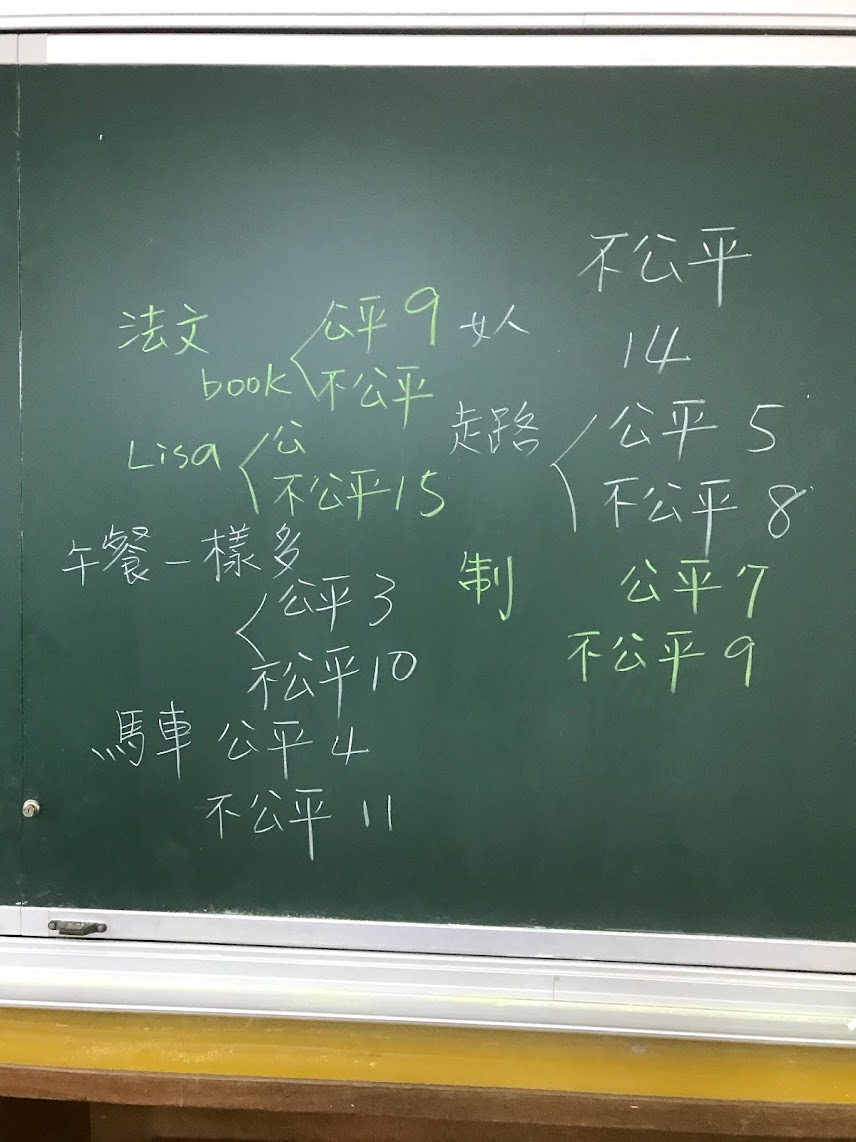 法文
公平 9
book
不公平
Lisa
公
不公平 15
午餐一樣多
公平 3
不公平 10
馬車 公平 4
不公平 11
女人
不公平
14
走路
公平 5
不公平 8
制 公平 7
不公平 9